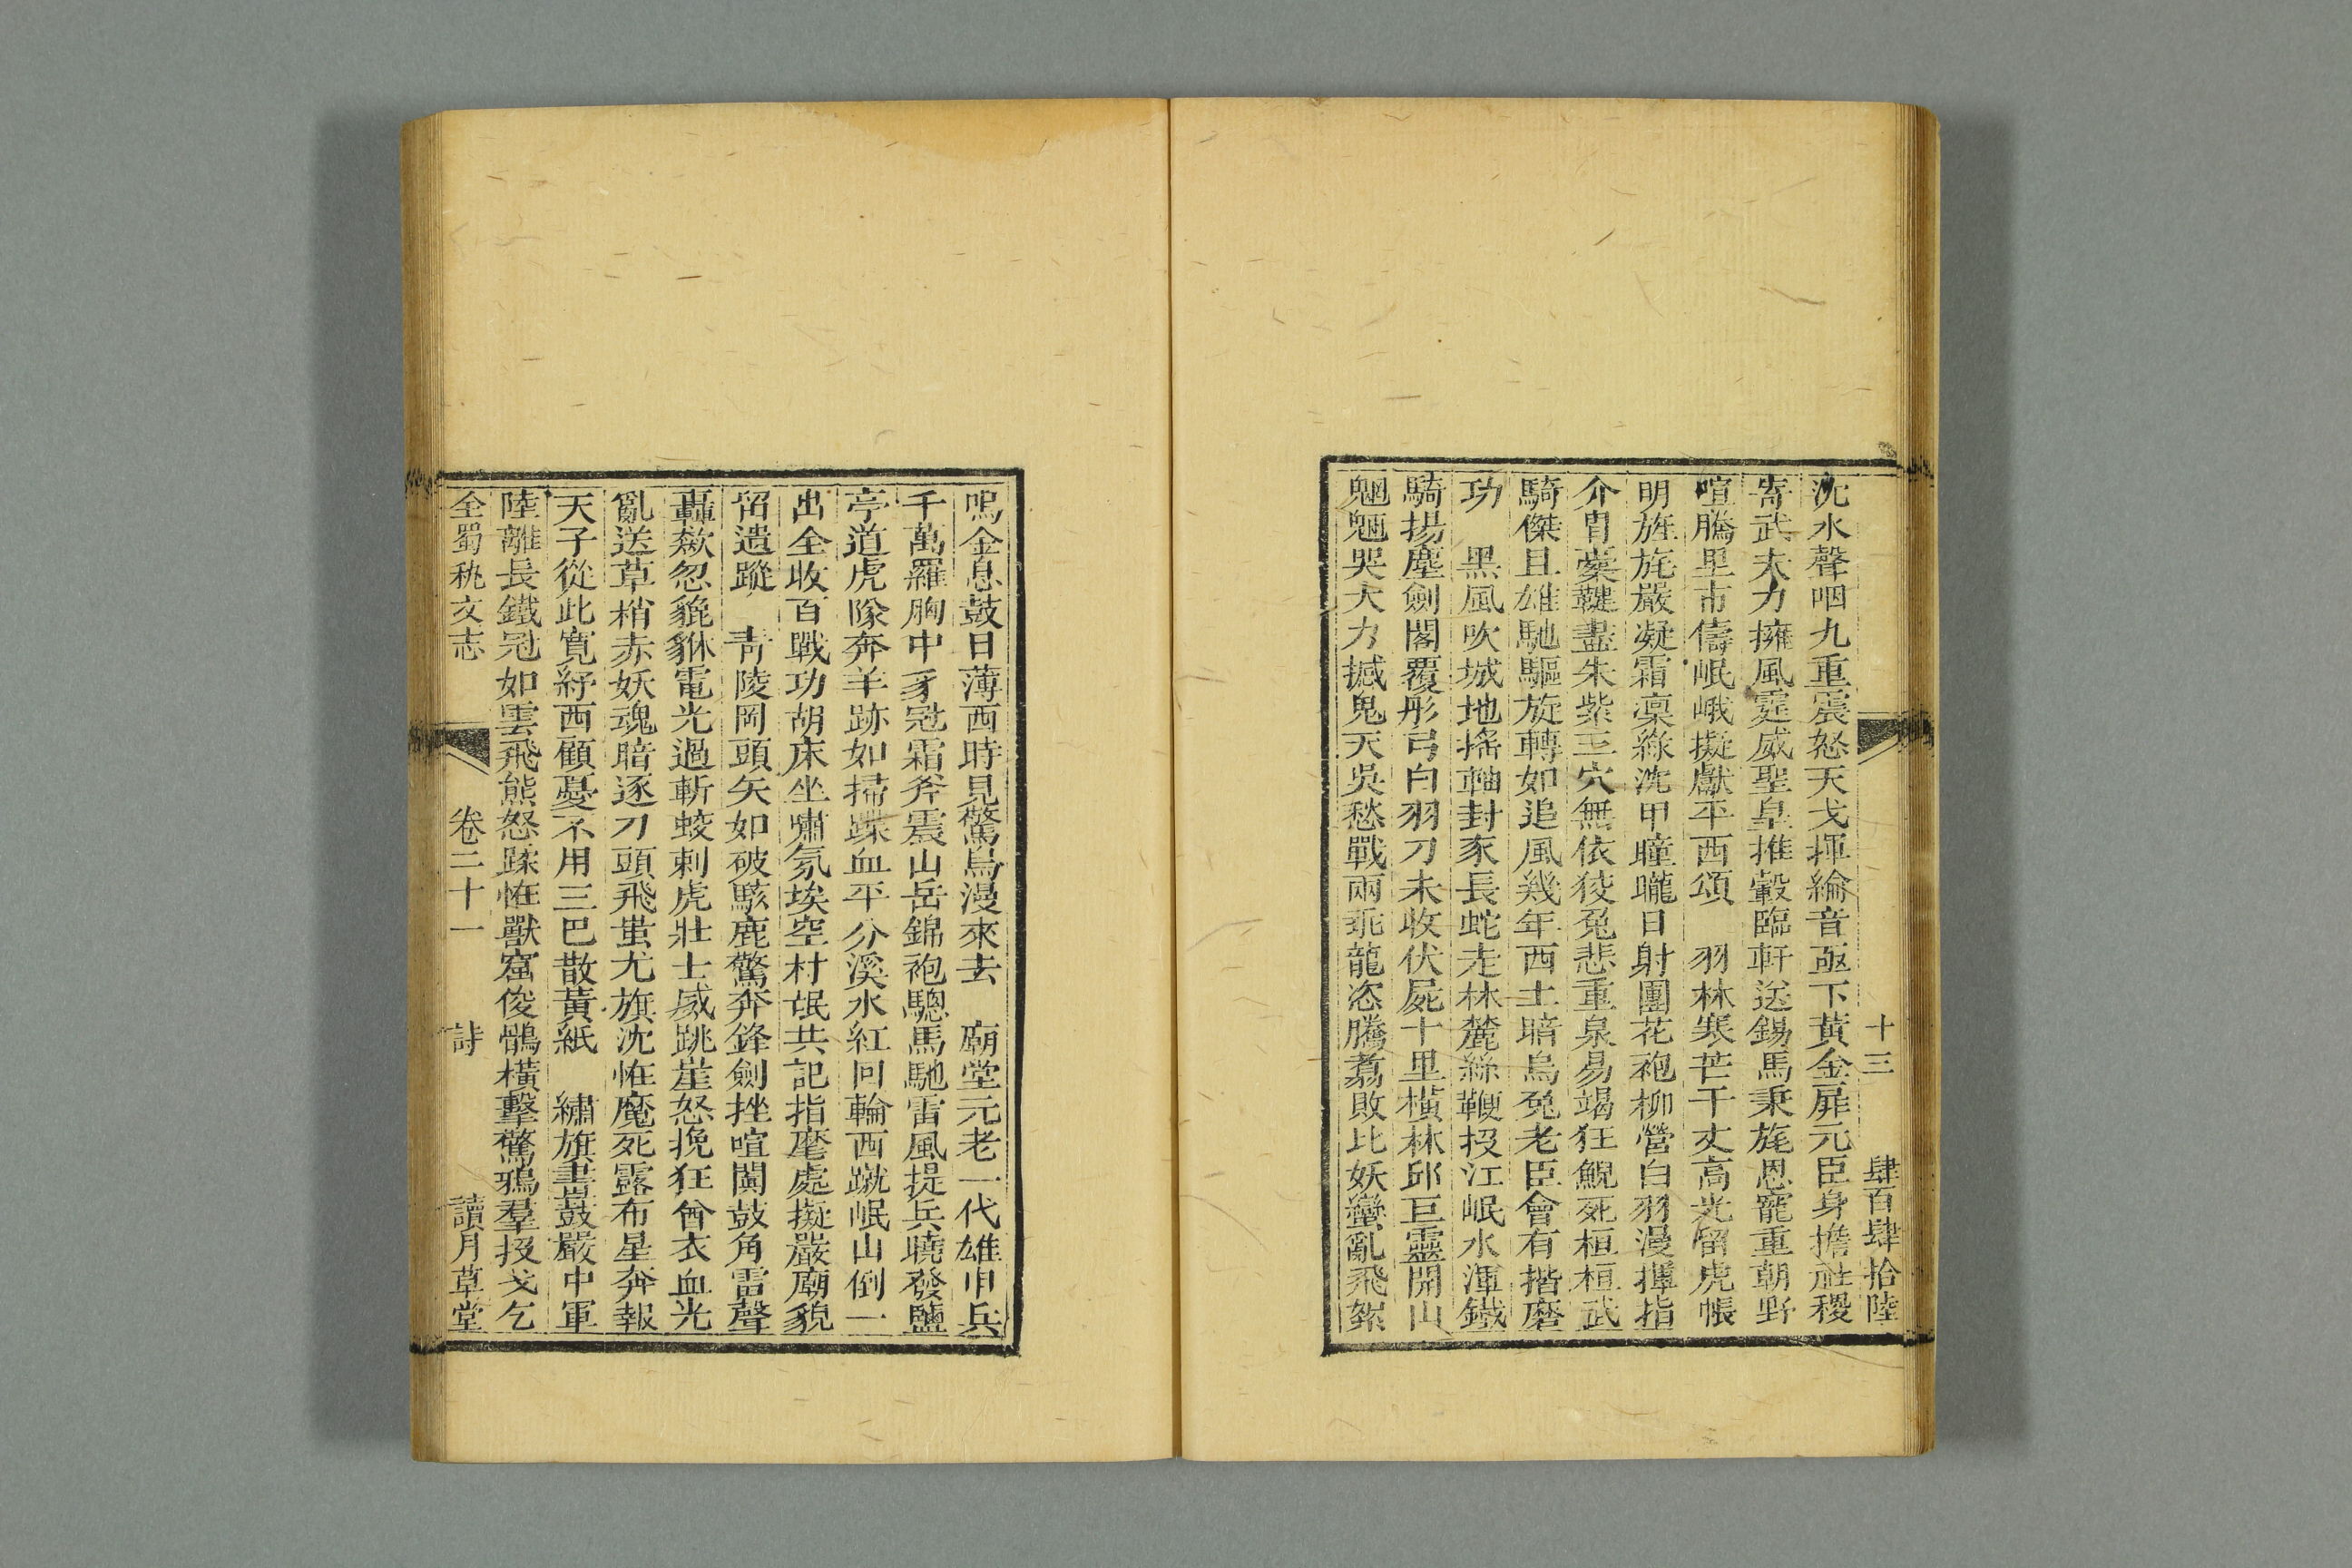 十三 肆百肆拾陸
沈水聲咽九重震怒天戈揮綸音亟下黃金扉元臣身擔社稷
寄武夫力擁風霆威聖皇推轂臨軒送錫馬秉旄恩寵重朝野
喧騰里市儔岷峨擬獻平西頌 羽林寒芒千丈高光留虎帳
明旌旄嚴凝霜凜綠沈甲瞳曨日射團花袍柳營白羽漫揮指
介胄櫜鞬盡朱紫三穴無依狡兔悲重泉易竭狂鯢死桓桓武
騎傑且雄馳驅旋轉如追風幾年西土暗烏兔老臣會有揩磨
功 黑風吹城地搖軸封豕長蛇走林麓絲鞭投江岷水渾鐵
騎揚塵劍閣覆彤弓白羽刀未收伏屍十里橫林邱巨靈開山
魍魎哭大力撼鬼天吳愁戰兩乖龍恣騰翥敗比妖鸞亂飛絮
鳴金息鼓日薄西時見驚烏漫來去 廟堂元老一代雄甲兵
千萬羅胸中豸冠霜斧震山岳錦袍驄馬馳雷風提兵曉發鹽
亭道虎隊奔羊跡如掃蹀血平分溪水紅回輪西蹴岷山倒一
出全收百戰功胡床坐嘯氛埃空村氓共記指麾處擬嚴廟貌
留遺蹤 青陵岡頭矢如破駭鹿驚奔鋒劍挫喧闐鼓角雷聲
轟歘忽貔貅電光過斬蛟刺虎壯士威跳崖怒挽狂酋衣血光
亂送草梢赤妖魂暗逐刀頭飛蚩尤旗沈恠魔死露布星奔報
天子從此寬紓西顧憂不用三巴散黃紙 繡旗畫鼓嚴中軍
陸離長鐵冠如雲飛熊怒蹂恠獸窟俊鶻橫擊驚鴉羣投戈乞
全蜀秇文志 卷二十一 詩 讀月草堂